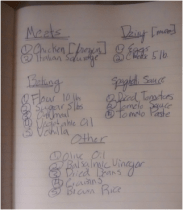 Meats
① Chicken [large]
② Italian Sausage
Dairy [more]
① Eggs
② 5 lb
Baking
① Flour 10 lb
② Sugar 5 lbs
③ Oatmeal
④ Vegetable Oil
⑤ Vanilla
Spaghetti Sauce
① Diced Tomatoes
② Tomato Sauce
③ Tomato Paste
Other
① Olive Oil
② Balsamic Vinegar
③ Dried Beans
④
⑤ Brown Rice